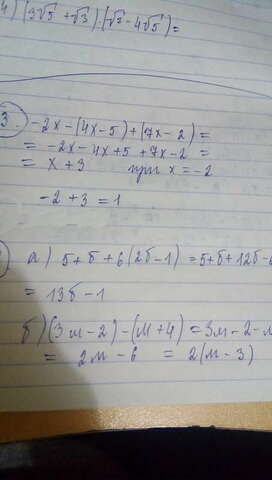 4) (3√5 + √3)·(√2 - 4√5) =
3 -2x - (4x - 5) + (7x - 2) =
= -2x - 4x + 5 + 7x - 2 =
= x + 3 при x = -2
-2 + 3 = 1
а) 5 + б + 6(2б - 1) = 5 + б + 12б - 6
= 13б - 1
б) (3м - 2) - (м + 4) = 3м - 2 - м
= 2м - 6 = 2(м - 3)